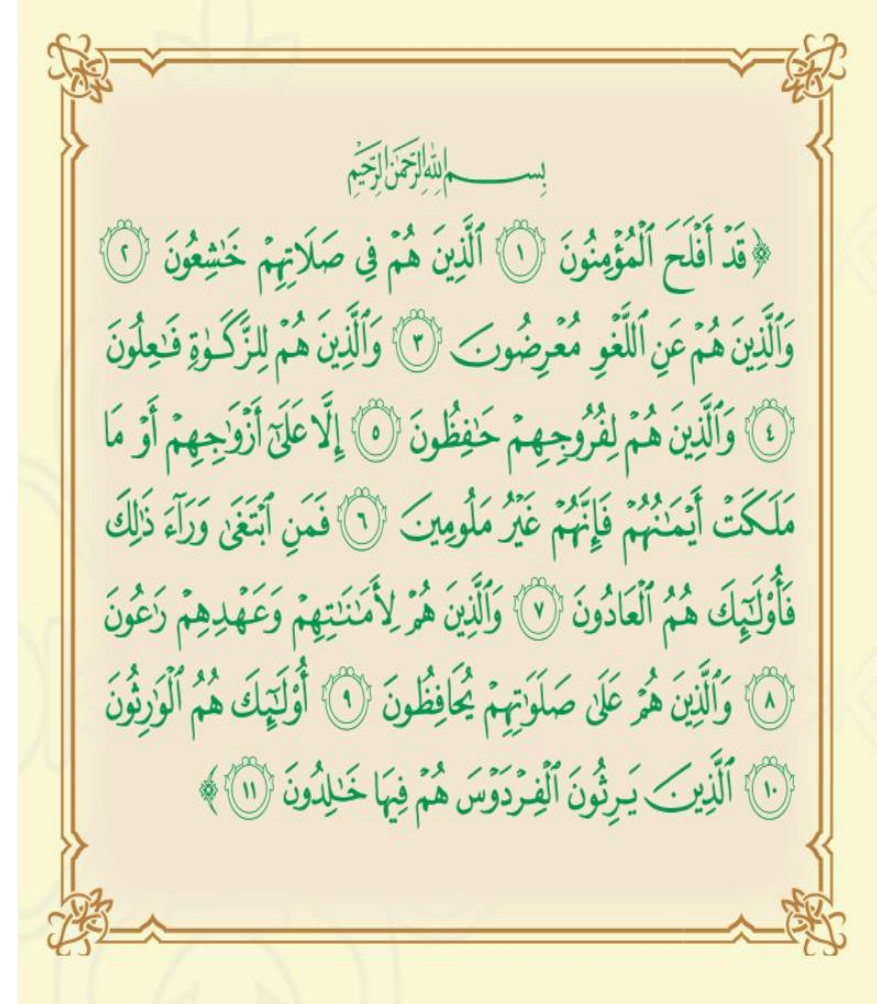 بِسْمِ اللَّهِ الرَّحْمَٰنِ الرَّحِيمِ
﴿قَدْ أَفْلَحَ ٱلْمُؤْمِنُونَ ١ ٱلَّذِينَ هُمْ فِى صَلَاتِهِمْ خَـٰشِعُونَ ٢
وَٱلَّذِينَ هُمْ عَنِ ٱللَّغْوِ مُعْرِضُونَ ٣ وَٱلَّذِينَ هُمْ لِلزَّكَوٰةِ فَـٰعِلُونَ
٤ وَٱلَّذِينَ هُمْ لِفُرُوجِهِمْ حَـٰفِظُونَ ٥ إِلَّا عَلَىٰٓ أَزْوَٰجِهِمْ أَوْ مَا
مَلَكَتْ أَيْمَـٰنُهُمْ فَإِنَّهُمْ غَيْرُ مَلُومِينَ ٦ فَمَنِ ٱبْتَغَىٰ وَرَآءَ ذَٰلِكَ
فَأُو۟لَـٰٓئِكَ هُمُ ٱلْعَادُونَ ٧ وَٱلَّذِينَ هُمْ لِأَمَـٰنَـٰتِهِمْ وَعَهْدِهِمْ رَٰعُونَ
٨ وَٱلَّذِينَ هُمْ عَلَىٰ صَلَوَٰتِهِمْ يُحَافِظُونَ ٩ أُو۟لَـٰٓئِكَ هُمُ ٱلْوَٰرِثُونَ
١٠ ٱلَّذِينَ يَرِثُونَ ٱلْفِرْدَوْسَ هُمْ فِيهَا خَـٰلِدُونَ ١١﴾